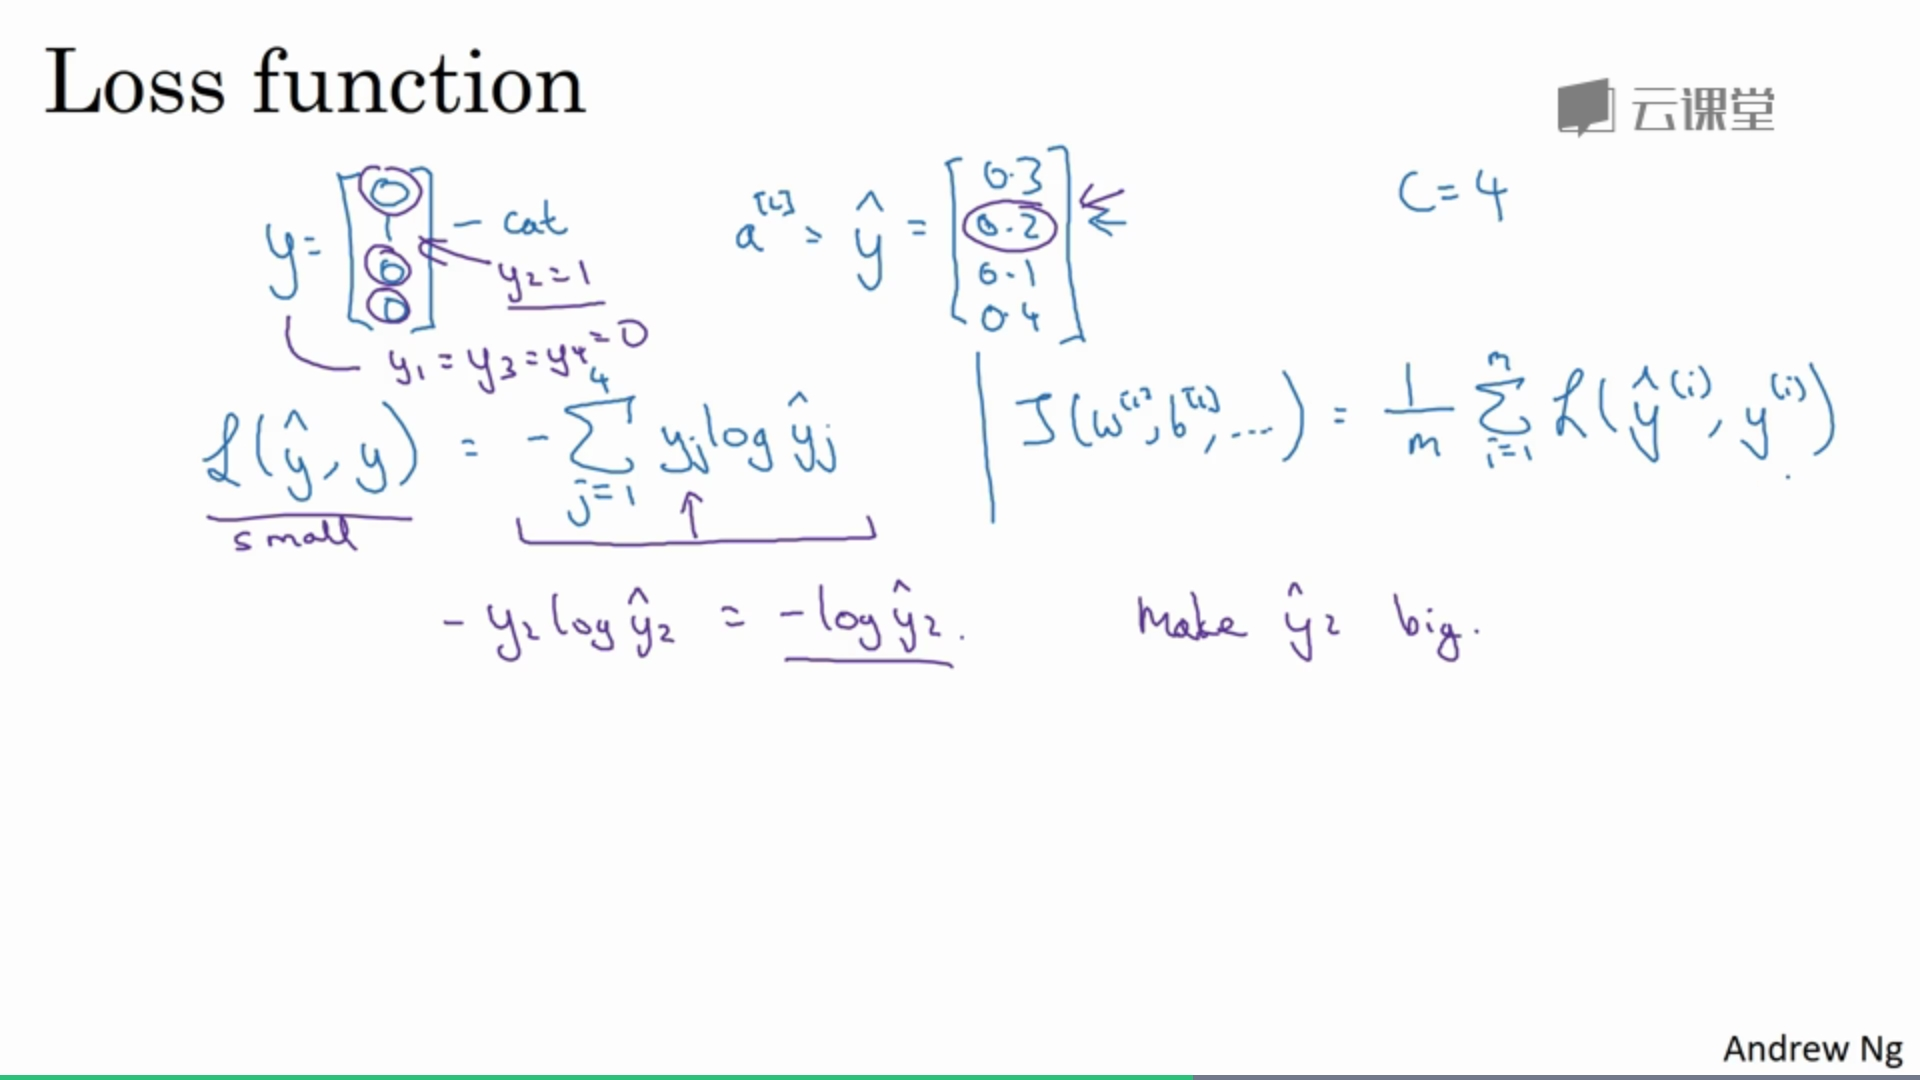 Loss function
云课堂
y = [0 1 0 0] - cat
y₂ = 1
y₁ = y₃ = y₄ = 0
a^[L] = ŷ = [0.3 0.2 0.1 0.4]
C = 4
ℒ(ŷ, y) = - Σ_{j=1}^{4} y_j log ŷ_j
small
J(w^[1], b^[1], ...) = 1/m Σ_{i=1}^{m} ℒ(ŷ^(i), y^(i))
- y₂ log ŷ₂ = - log ŷ₂.
Make ŷ₂ big.
Andrew Ng